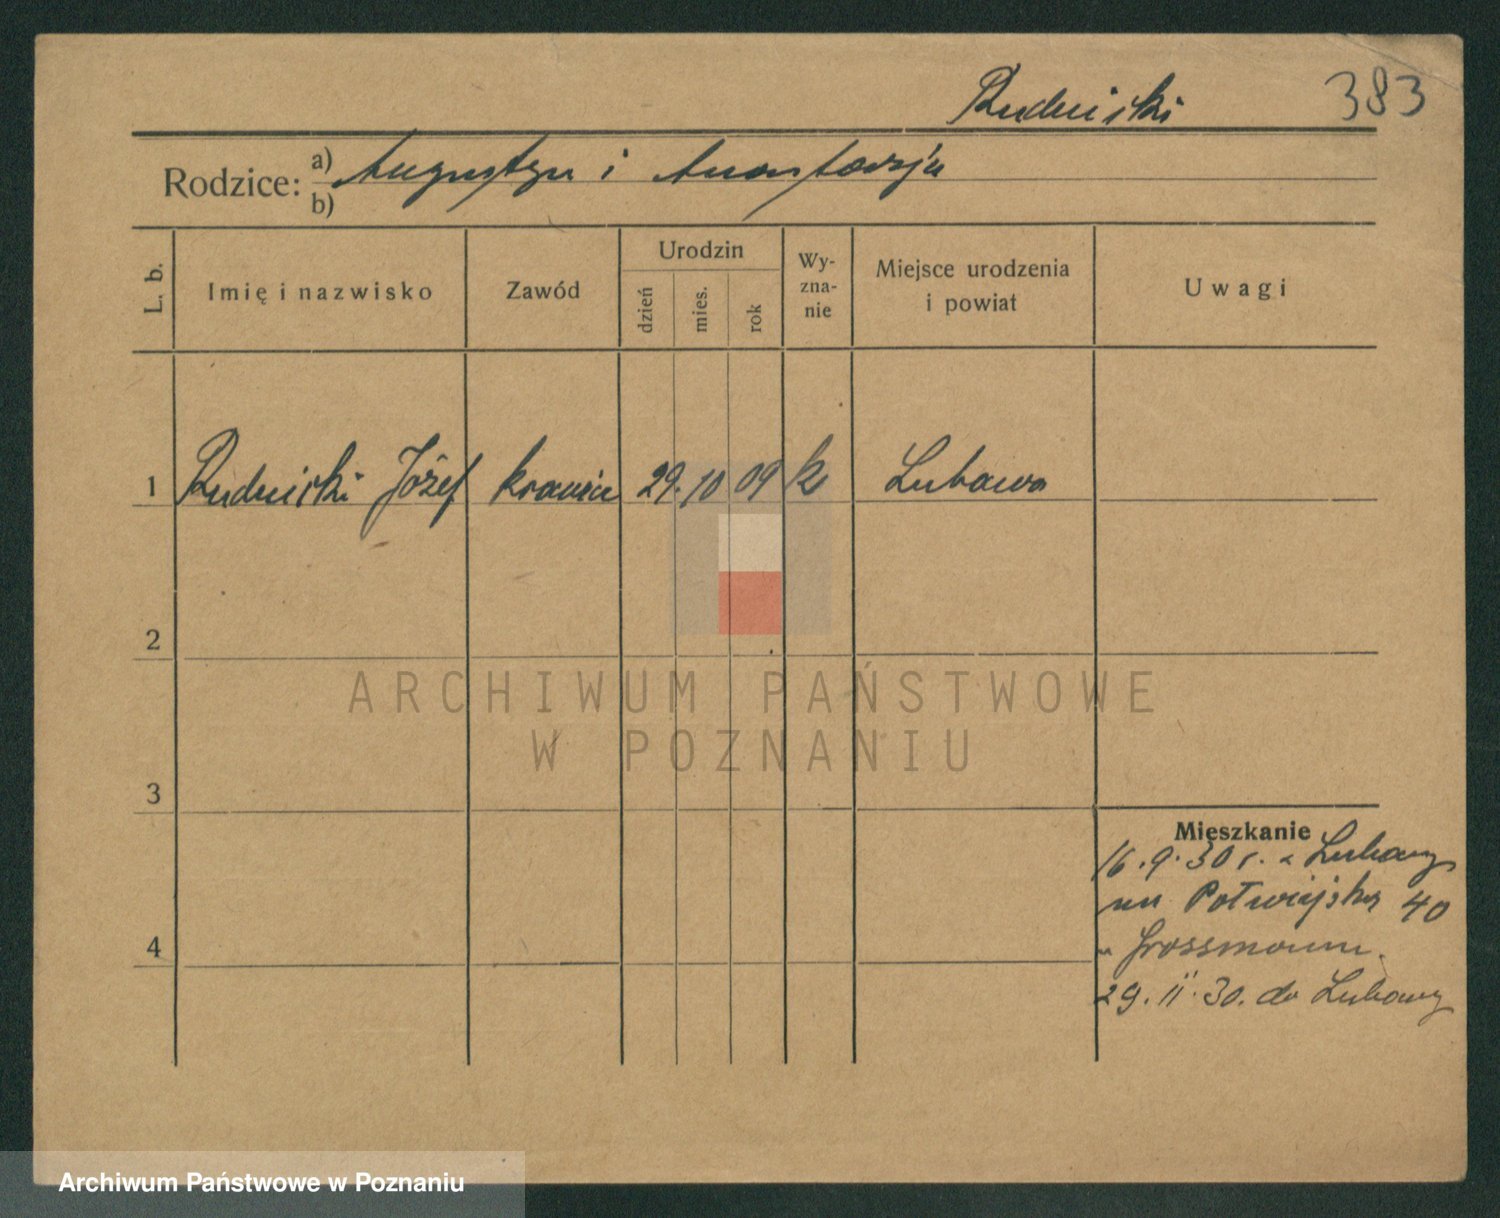 Rudnicki 383
Rodzice: a) Augustyn i Anastazja
b)
L. b.
Imię i nazwisko
Zawód
Urodzin
dzień
mies.
rok
Wy-
zna-
nie
Miejsce urodzenia
i powiat
Uwagi
1 Rudnicki Józef krawiec 29. 10 09 k Lubawa
2
3
4
Mieszkanie
16.9.30 r. z Lubawy
na Półwiejską 40
u Grossmann.
29.11.30. do Lubawy
ARCHIWUM PAŃSTWOWE
W POZNANIU
Archiwum Państwowe w Poznaniu